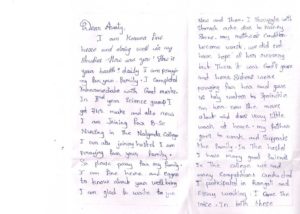 Dear Aunty
I am Kusuma fine
here and doing well in my
studies. How are you? How is
your health? daily I am praying
for you family. I completed
Intermediate with Good marks.
In 2nd year science group I
get 712 marks and also now
I am joining for B.Sc
Nursing in the Nalgonda College
I am also joining hostel. I am
praying for your family.
So please pray for my family.
I am fine here and eager
to know about your well being
I am glad to write to you
Now and then. I struggle with
stomach ache due to kidney
Stone. my mother condition
become worse. we did not
have hope of her surviving
but Think it was God's grace
and hence Relieve
for her and gave
us holy waters to sprinkle
on her now she more
alert and does very little
work at home. my father
goes to work and supports
the family. In the hostel
I have many good friends
In the college we had
many Competitions conducted
I participated in Rangoli and
Essay writing. I gave the
In both these